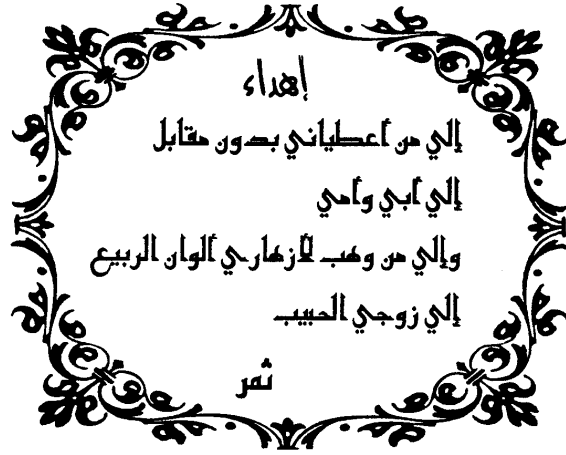 إهداء
إلي من أعطياني بدون مقابل
إلي أبي وأمي
وإلي من وهب لأزهاري ألوان الربيع
إلي زوجي الحبيب
ثمر